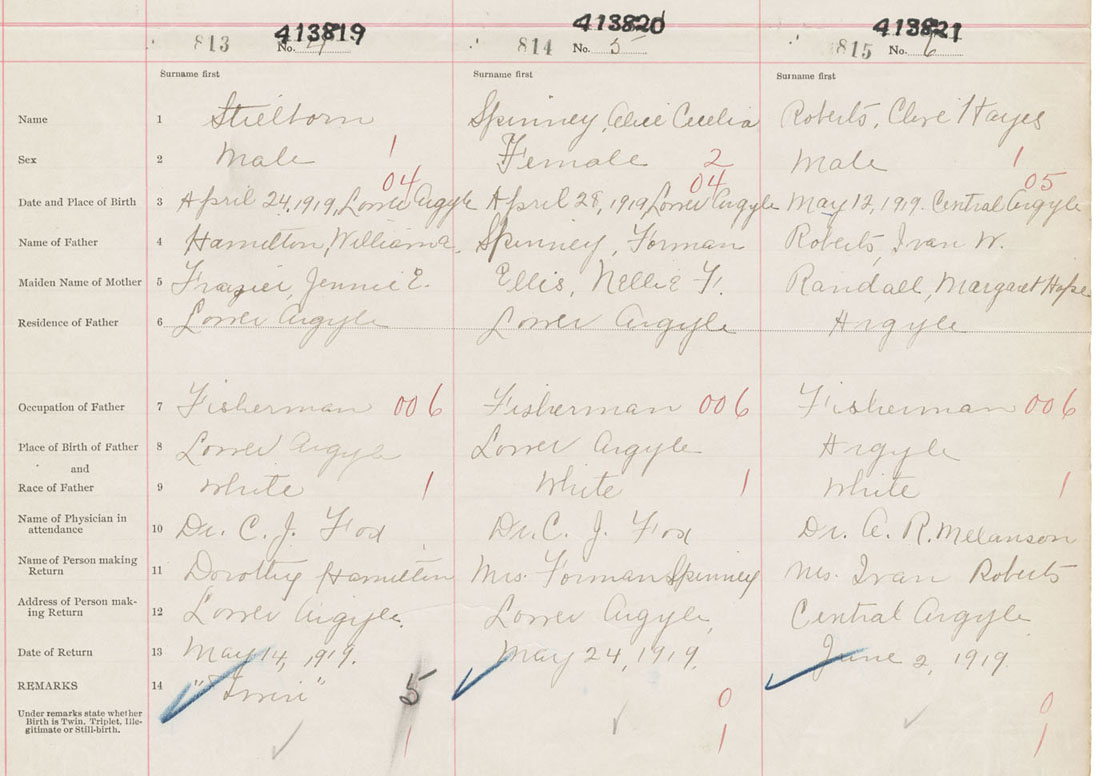 413819 413820 413821
813 No. 4 814 No. 5 815 No. 6
Surname first Surname first Surname first
Name 1 Stielborn Spinney, Alice Cecelia Roberts, Clive Hayes
Sex 2 Male 1 Female 2 Male 1
04 04 05
Date and Place of Birth 3 April 24, 1919, Lower Argyle April 28, 1919 Lower Argyle May 12, 1919. Central Argyle
Name of Father 4 Hamilton, William a. Spinney, Forman Roberts, Ivan W.
Maiden Name of Mother 5 Frazier, Jennie E. Ellis, Nellie F. Randall, Margaret Hope
Residence of Father 6 Lower Argyle Lower Argyle Argyle
Occupation of Father 7 Fisherman 006 Fisherman 006 Fisherman 006
Place of Birth of Father 8 Lower Argyle Lower Argyle Argyle
and
Race of Father 9 White 1 White 1 White 1
Name of Physician in
attendance 10 Dr. C. J. Fox Dr. C. J. Fox Dr. A. R. Melanson
Name of Person making
Return 11 Dorothy Hamilton Mrs. Forman Spinney Mrs. Ivan Roberts
Address of Person mak-
ing Return 12 Lower Argyle. Lower Argyle, Central Argyle
Date of Return 13 May 14, 1919. May 24, 1919. June 2, 1919
REMARKS 14 "Twin" 5 0 0
Under remarks state whether
Birth is Twin, Triplet, Ille-
gitimate or Still-birth.
1 1 1